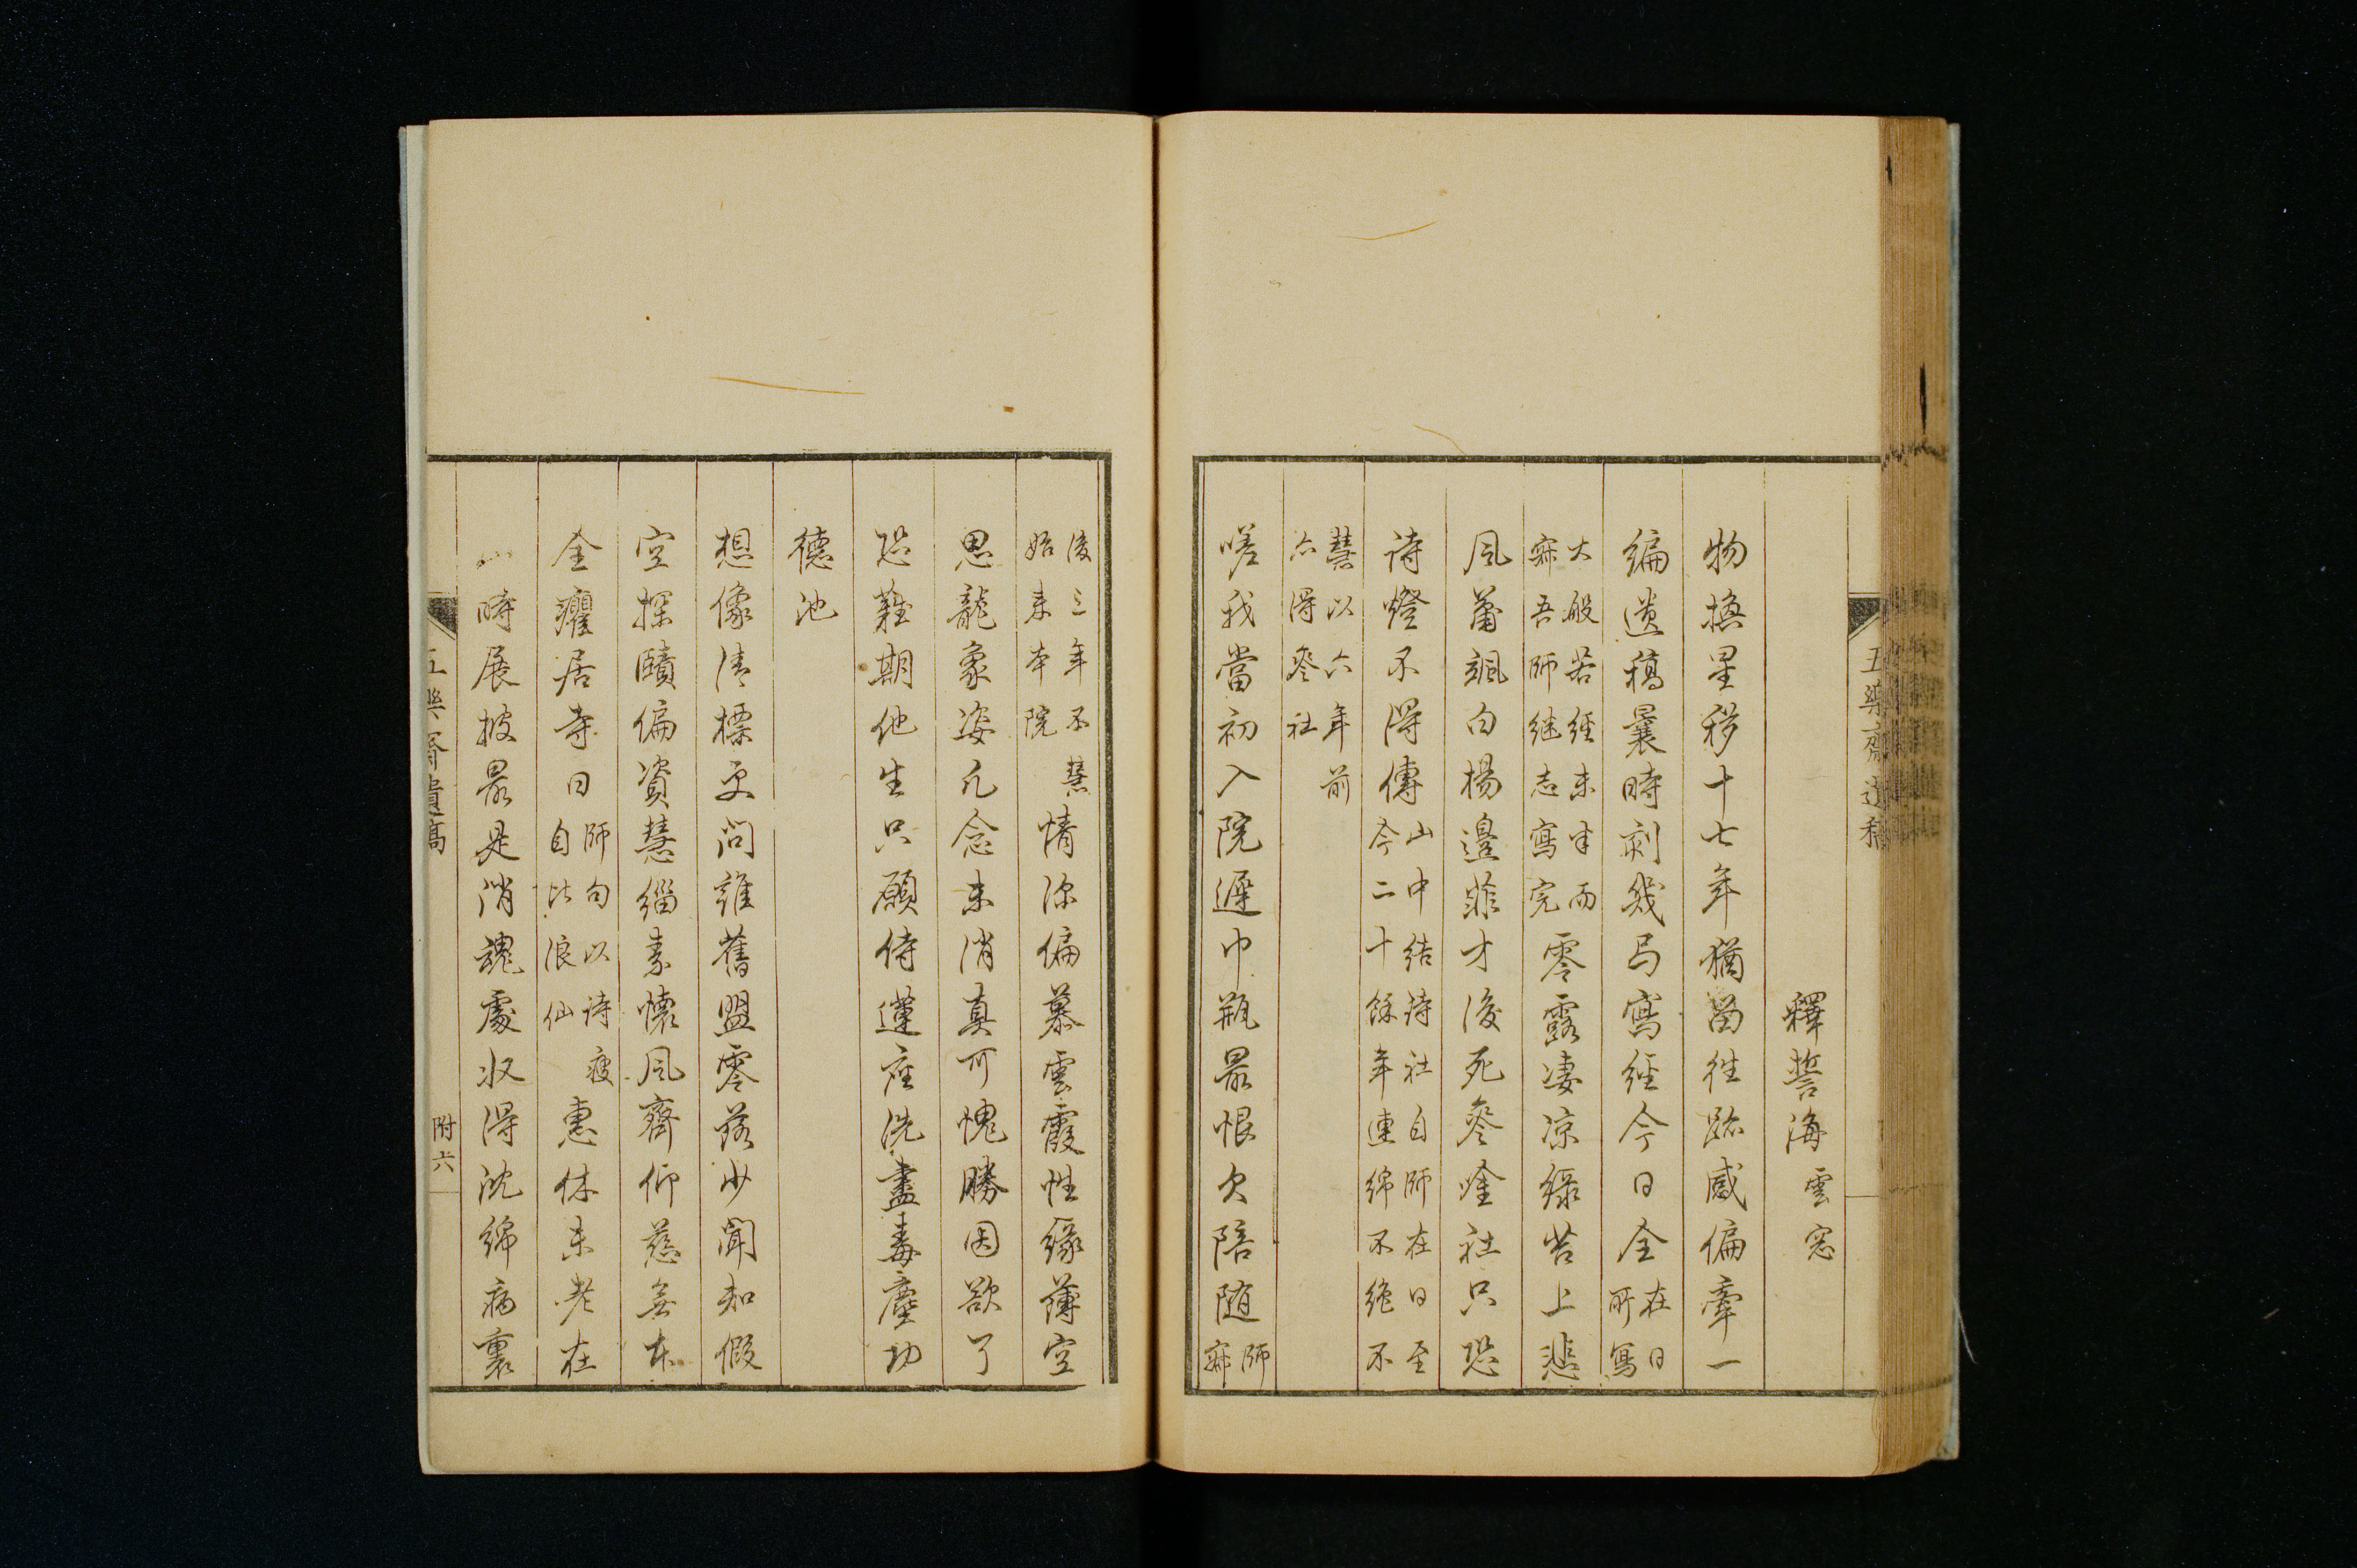 五樂齋遺稿
釋誓海雲窓
物換星移十七年猶留往跡感偏牽一
編遺稿曩時刻幾局寫經今日全在日所寫
大般若經未半而寂吾師継志寫完零露凄凉緑苔上悲
風蕭颯白楊邊菲才後死参唫社只恐
詩燈不得傳山中結詩社自師在日至今二十餘年連綿不絶不
慧以六年前亦得参社
嗟我當初入院遲巾瓶最恨欠陪随師寂
後三年不慧始来本院情深偏慕雲霞性縁薄空
思龍象姿凡念未消真可愧勝因欲了
恐難期他生只願侍蓮座洗盡毒塵功
德池
想像清標更問誰舊盟零落少聞知假
空探賾偏資慧緇素懐風齊仰慈無本
全癯居寺日師句以詩瘦自比浪仙惠休未老在
時展披最是消魂處収得沈綿病裏
五樂齋遺稿
附六